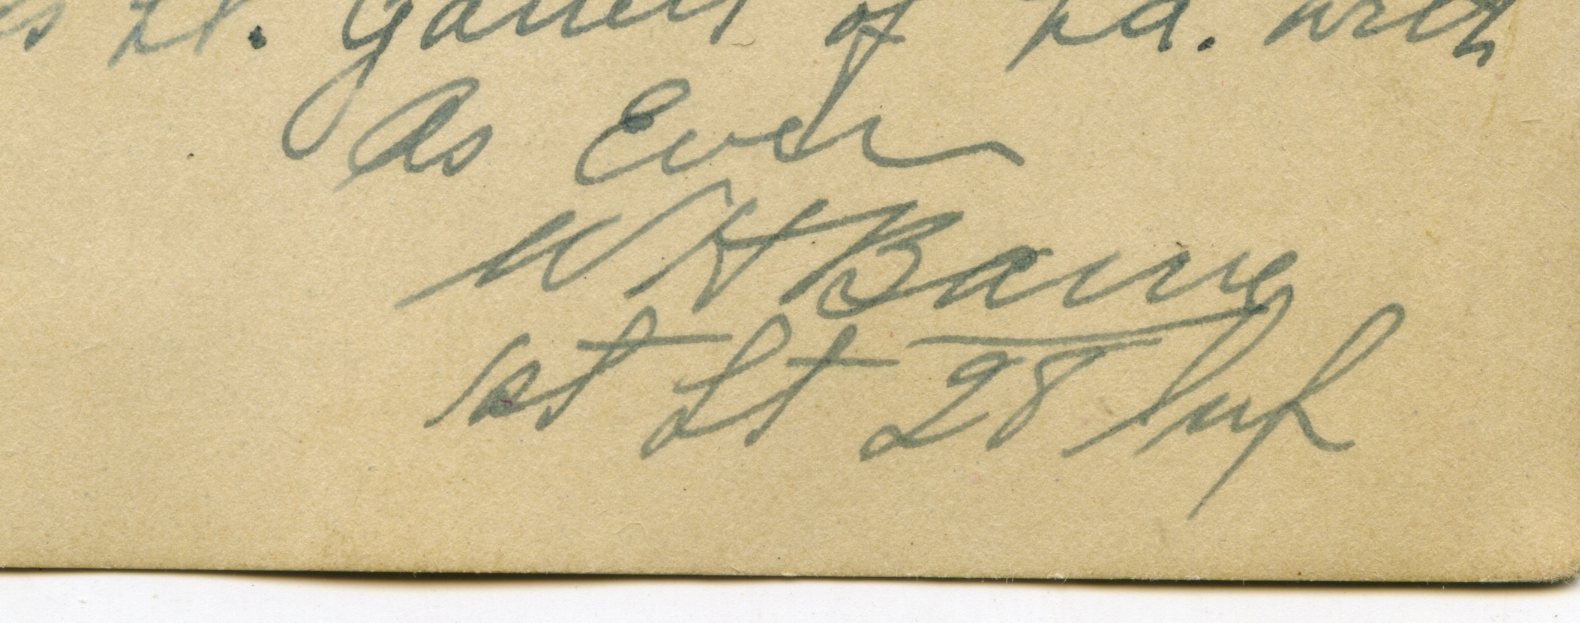 Lt. Garrett of La. with
As Ever
W H Barre
1st Lt 28 Inf